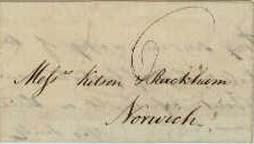 6
Messrs Kitson & Rackham
Norwich